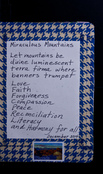 Miraculous Mountains
Let mountains be
divine luminescent
terra firma where
banners trumpet
Love
Faith
Forgiveness
Compassion
Peace
Reconciliation
Literacy
and harmony for all
December